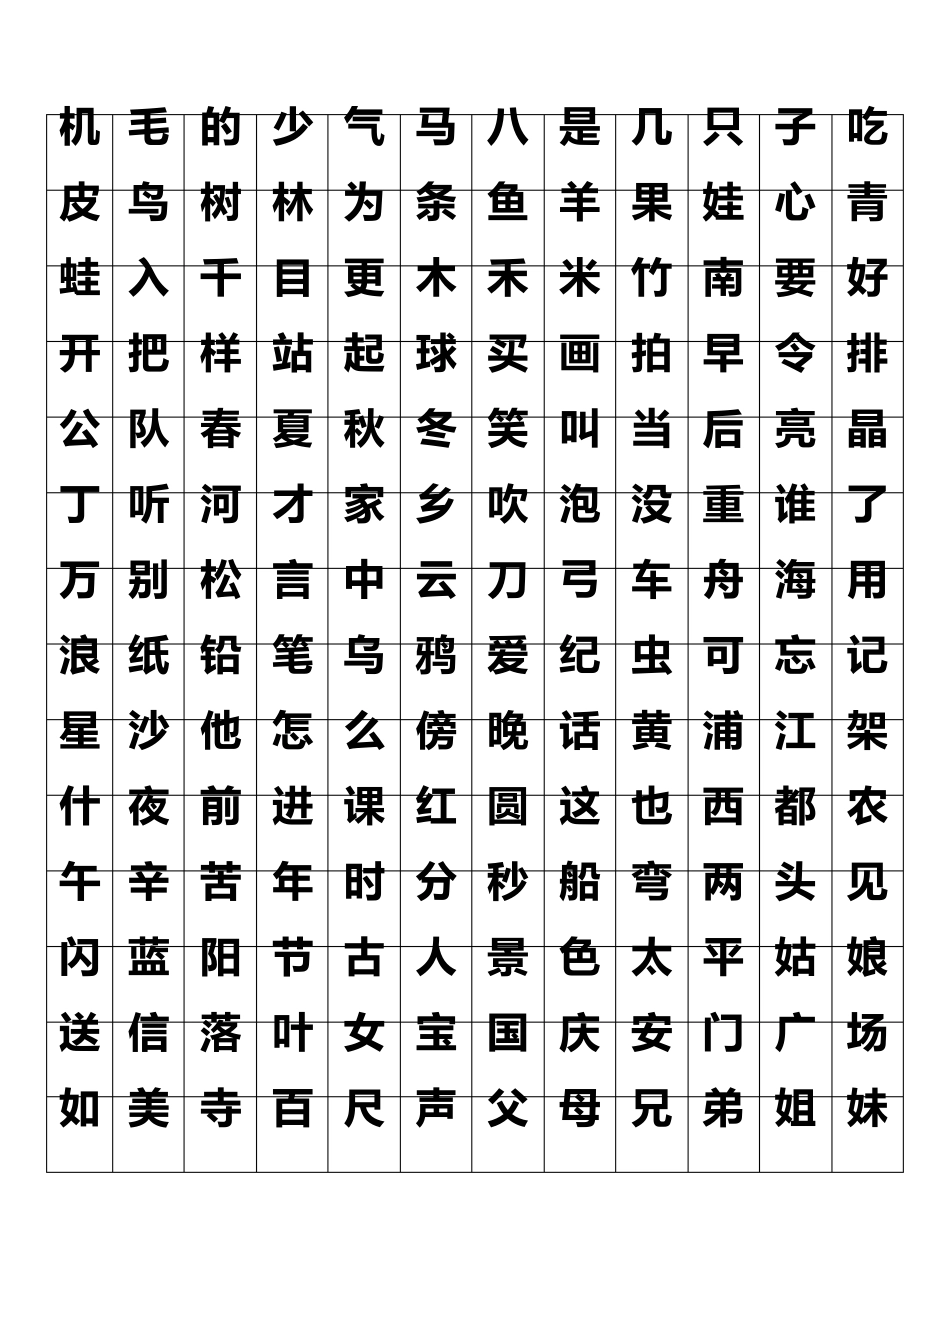 机 毛 的 少 气 马 八 是 几 只 子 吃
皮 鸟 树 林 为 条 鱼 羊 果 娃 心 青
蛙 入 千 目 更 木 禾 米 竹 南 要 好
开 把 样 站 起 球 买 画 拍 早 令 排
公 队 春 夏 秋 冬 笑 叫 当 后 亮 晶
丁 听 河 才 家 乡 吹 泡 没 重 谁 了
万 别 松 言 中 云 刀 弓 车 舟 海 用
浪 纸 铅 笔 乌 鸦 爱 纪 虫 可 忘 记
星 沙 他 怎 么 傍 晚 话 黄 浦 江 架
什 夜 前 进 课 红 圆 这 也 西 都 农
午 辛 苦 年 时 分 秒 船 弯 两 头 见
闪 蓝 阳 节 古 人 景 色 太 平 姑 娘
送 信 落 叶 女 宝 国 庆 安 门 广 场
如 美 寺 百 尺 声 父 母 兄 弟 姐 妹